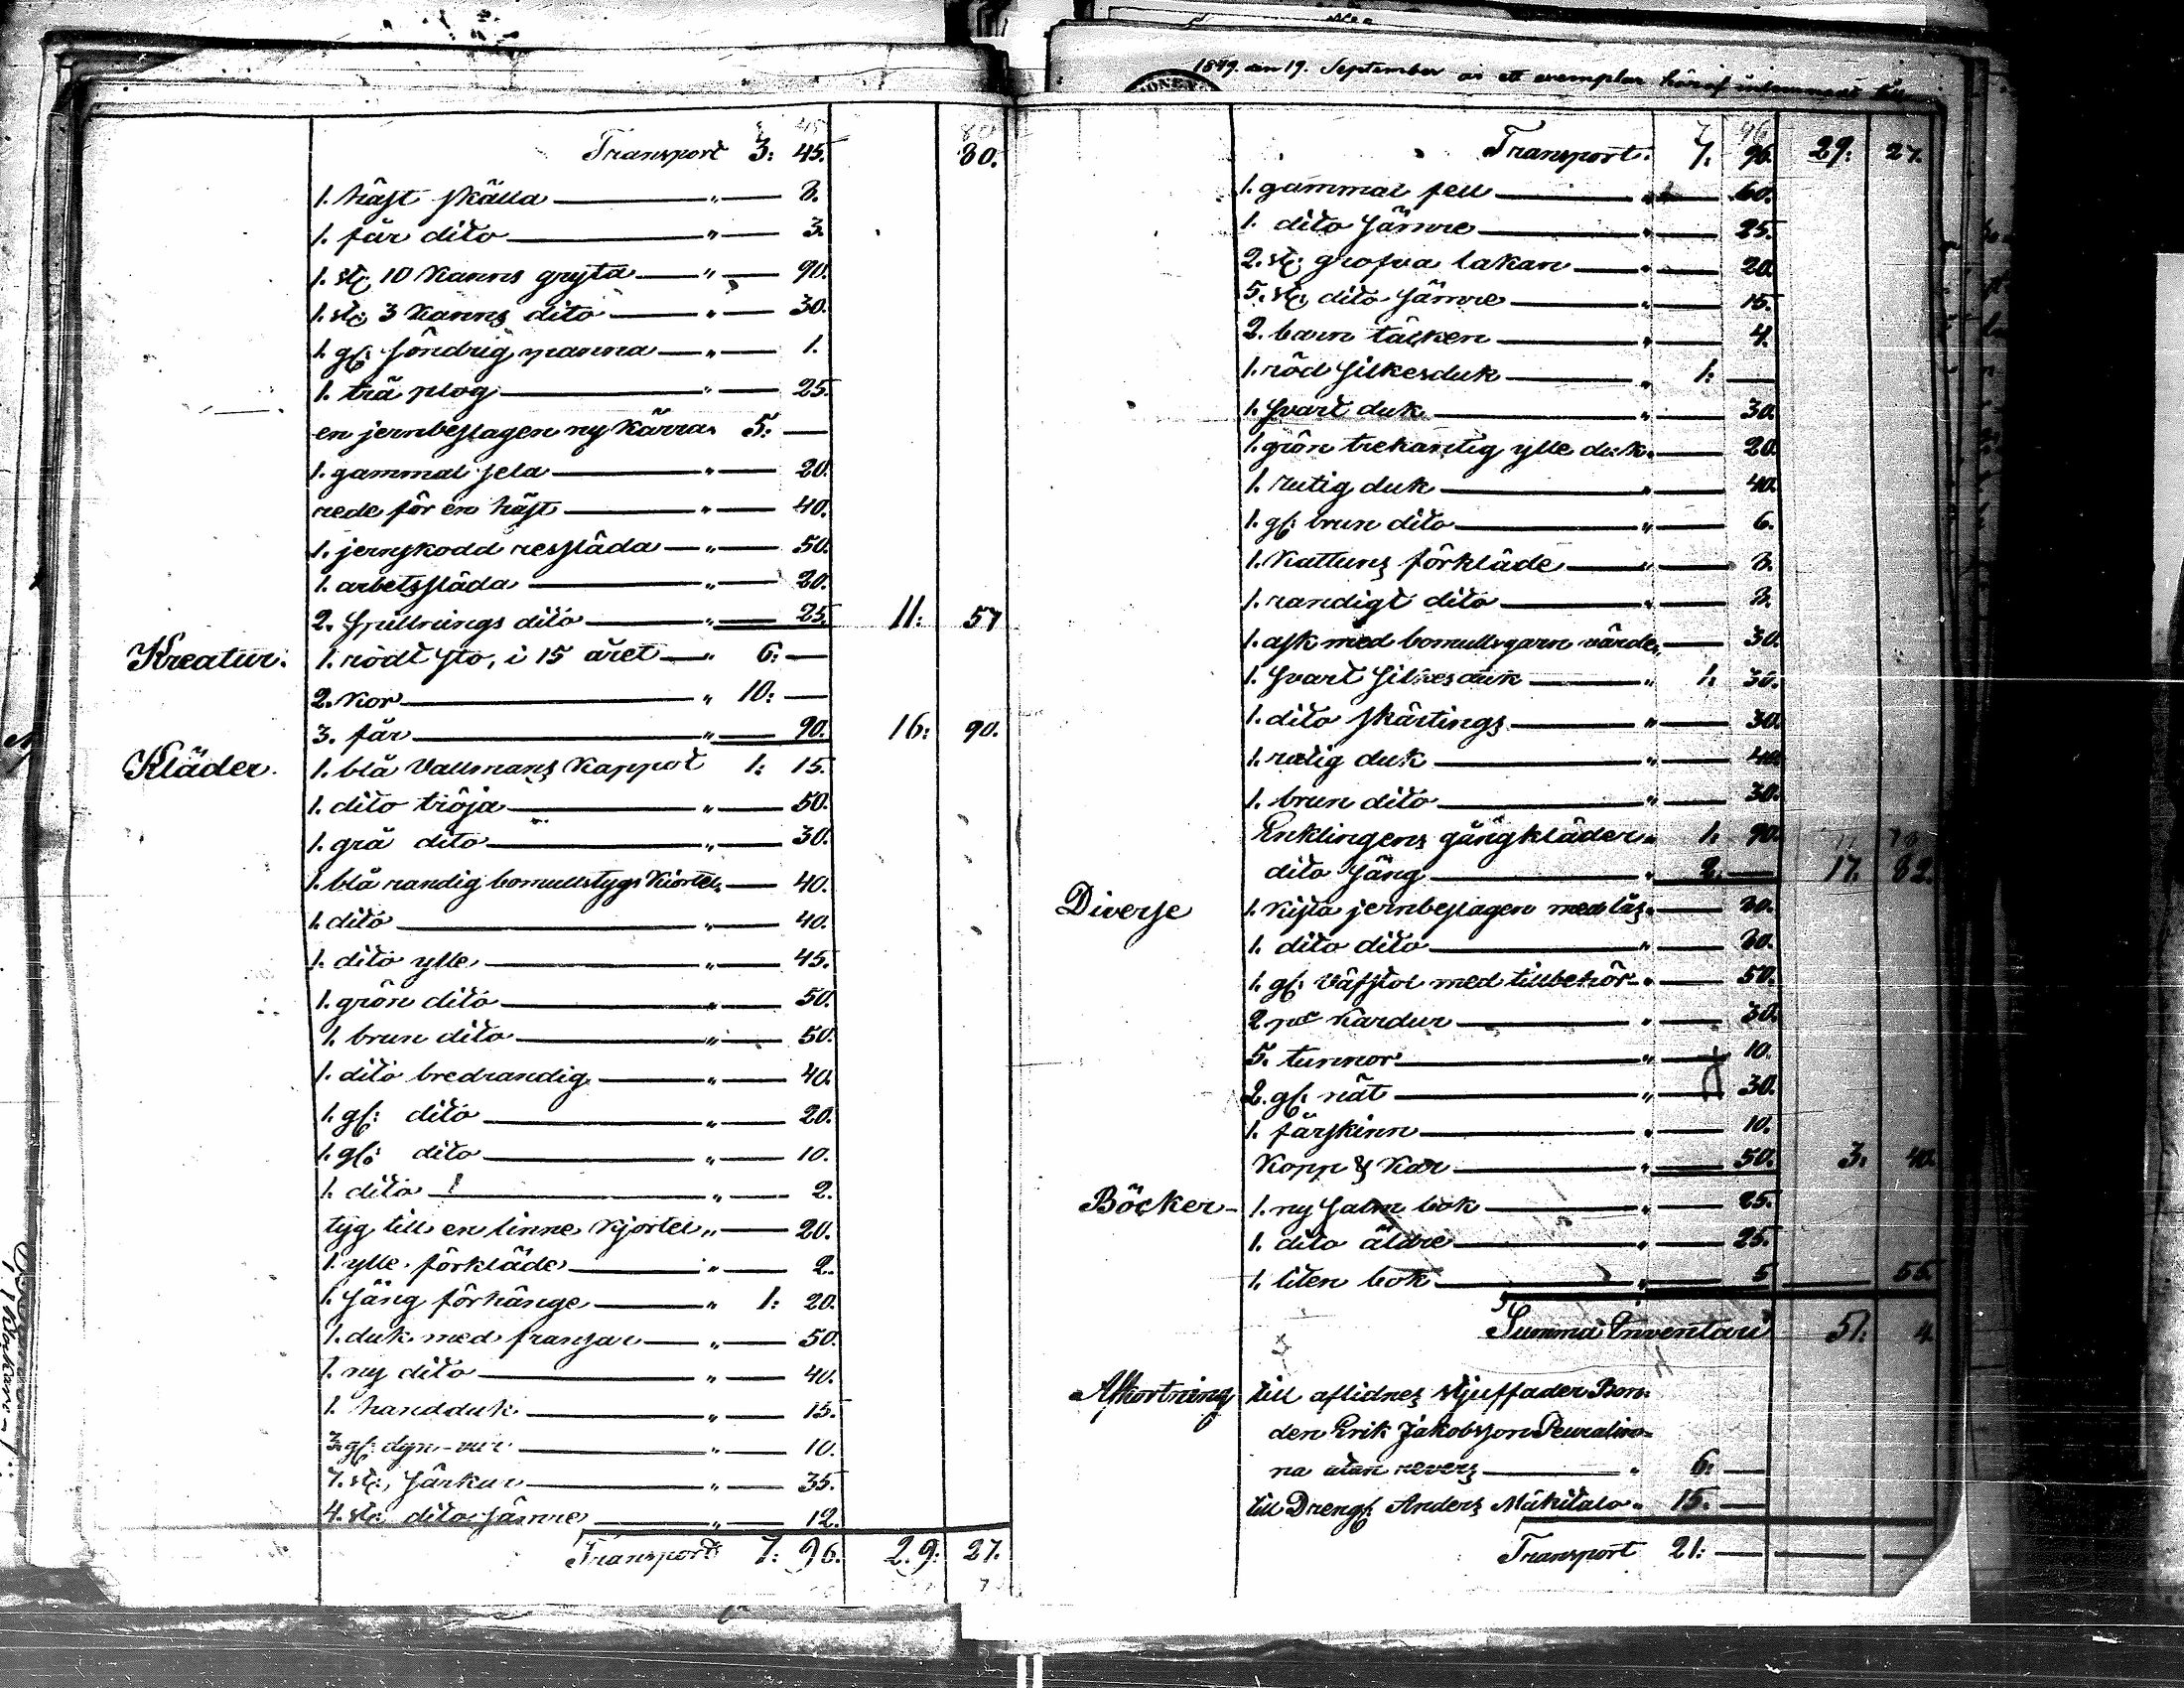 Transport 3: 45. 80.
1. häst skälla — " — 3.
1. får dito — " — 3.
1. st: 10 Kanns gryta — " — 90.
1. st: 3 Kanns dito — " — 30.
1. gl: söndrig panna — " — 1.
1. trä plog — " — 25.
en jernbeslagen ny Kärra " 5: —
1. gammal sela — " — 20.
rede för en häst — " — 40.
1. jernskodd resslåda — " — 50.
1. arbetsslåda — " — 20.
2. spillnings dito — " — 25. 11: 57
Kreatur. 1. rödt sto, i 15 året — " 6: —
2. Kor — " 10: —
3. får — " — 90. 16: 90.
Kläder. 1. blå Vallmans Kappot 1: 15.
1. dito tröja — " — 50.
1. grå dito — " — 30.
1. blå randig bomullstygs Kiortel " — 40.
1. dito — " — 40.
1. dito ylle — " — 45.
1. grön dito — " — 50.
1. brun dito — " — 50.
1. dito bredrandig — " — 40.
1. gl: dito — " — 20.
1. gl: dito — " — 10.
1. dito — " — 2.
tyg till en linne Kjortel " — 20.
1. ylle förkläde — " — 2.
1. säng förhänge — " 1: 20.
1. duk med fransar — " — 50.
1. ny dito — " — 40.
1. handduk — " — 15.
3. gl: dyn-var — " — 10.
7. st: särkar — " — 35.
4. st: dito sämre — " — 12.
Transport 7: 96. 29: 27.
1849. den 19. September är ett exemplar häraf
Transport. 7: 96. 29: 27.
1. gammal fell — " — 60.
1. dito sämre — " — 25.
2. st: grofva lakan — " — 20.
5. st: dito sämre — " — 15.
2. barn täcken — " — 4.
1. röd silkesduk — " 1: —
1. svart duk — " — 30.
1. grön trekantig ylle duk " — 20.
1. rutig duk — " — 40.
1. gl: brun dito — " — 6.
1. Kattuns förkläde — " — 3.
1. randigt dito — " — 3.
1. ask med bomullsgarn värde " — 30.
1. svart silkesduk — " 1: 30.
1. dito skärtings — " — 30.
1. rutig duk — " — 40.
1. brun dito — " — 30.
Enklingens gångkläder " 1: 90.
dito säng — " 2: — 17. 82.
Diverse 1. Kista jernbeslagen med lås " — 80.
1. dito dito — " — 80.
1. gl: väfstol med tillbehör " — 50.
2. par Kardor — " — 30.
5. tunnor — " — 10.
2. gl: nät — " — 30.
1. fårskinn — " — 10.
Kopp & Kar — " — 50. 3: 40.
Böcker — 1. ny salm bok — " — 25.
1. dito äldre — " — 25.
1. liten bok — " — 5 — 55.
Summa Inventarii 51: 4.
Afkortning till aflidnes stjuffader Bon-
den Erik Jakobsson
na utan revers — " 6: —
till Drengs: Anders Mäkitalo " 15. —
Transport 21: — — —